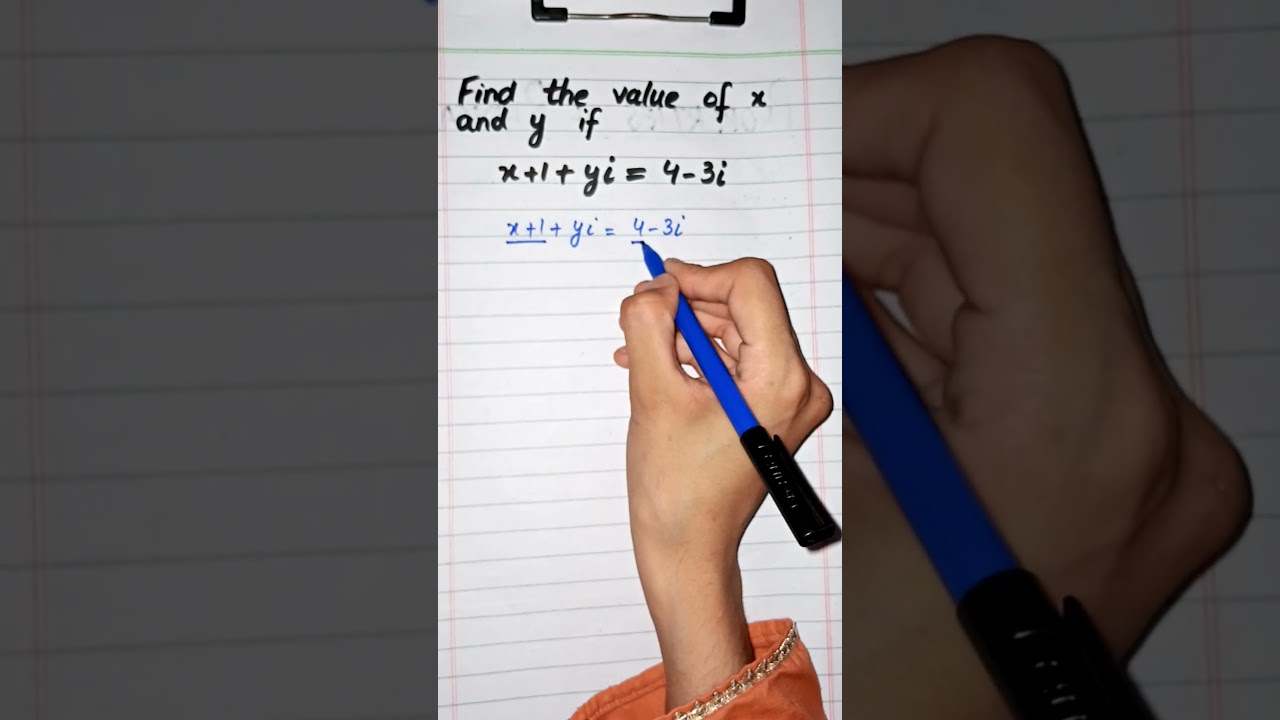 Find the value of x
and y if
x+1+yi=4-3i
x+1+yi=4-3i